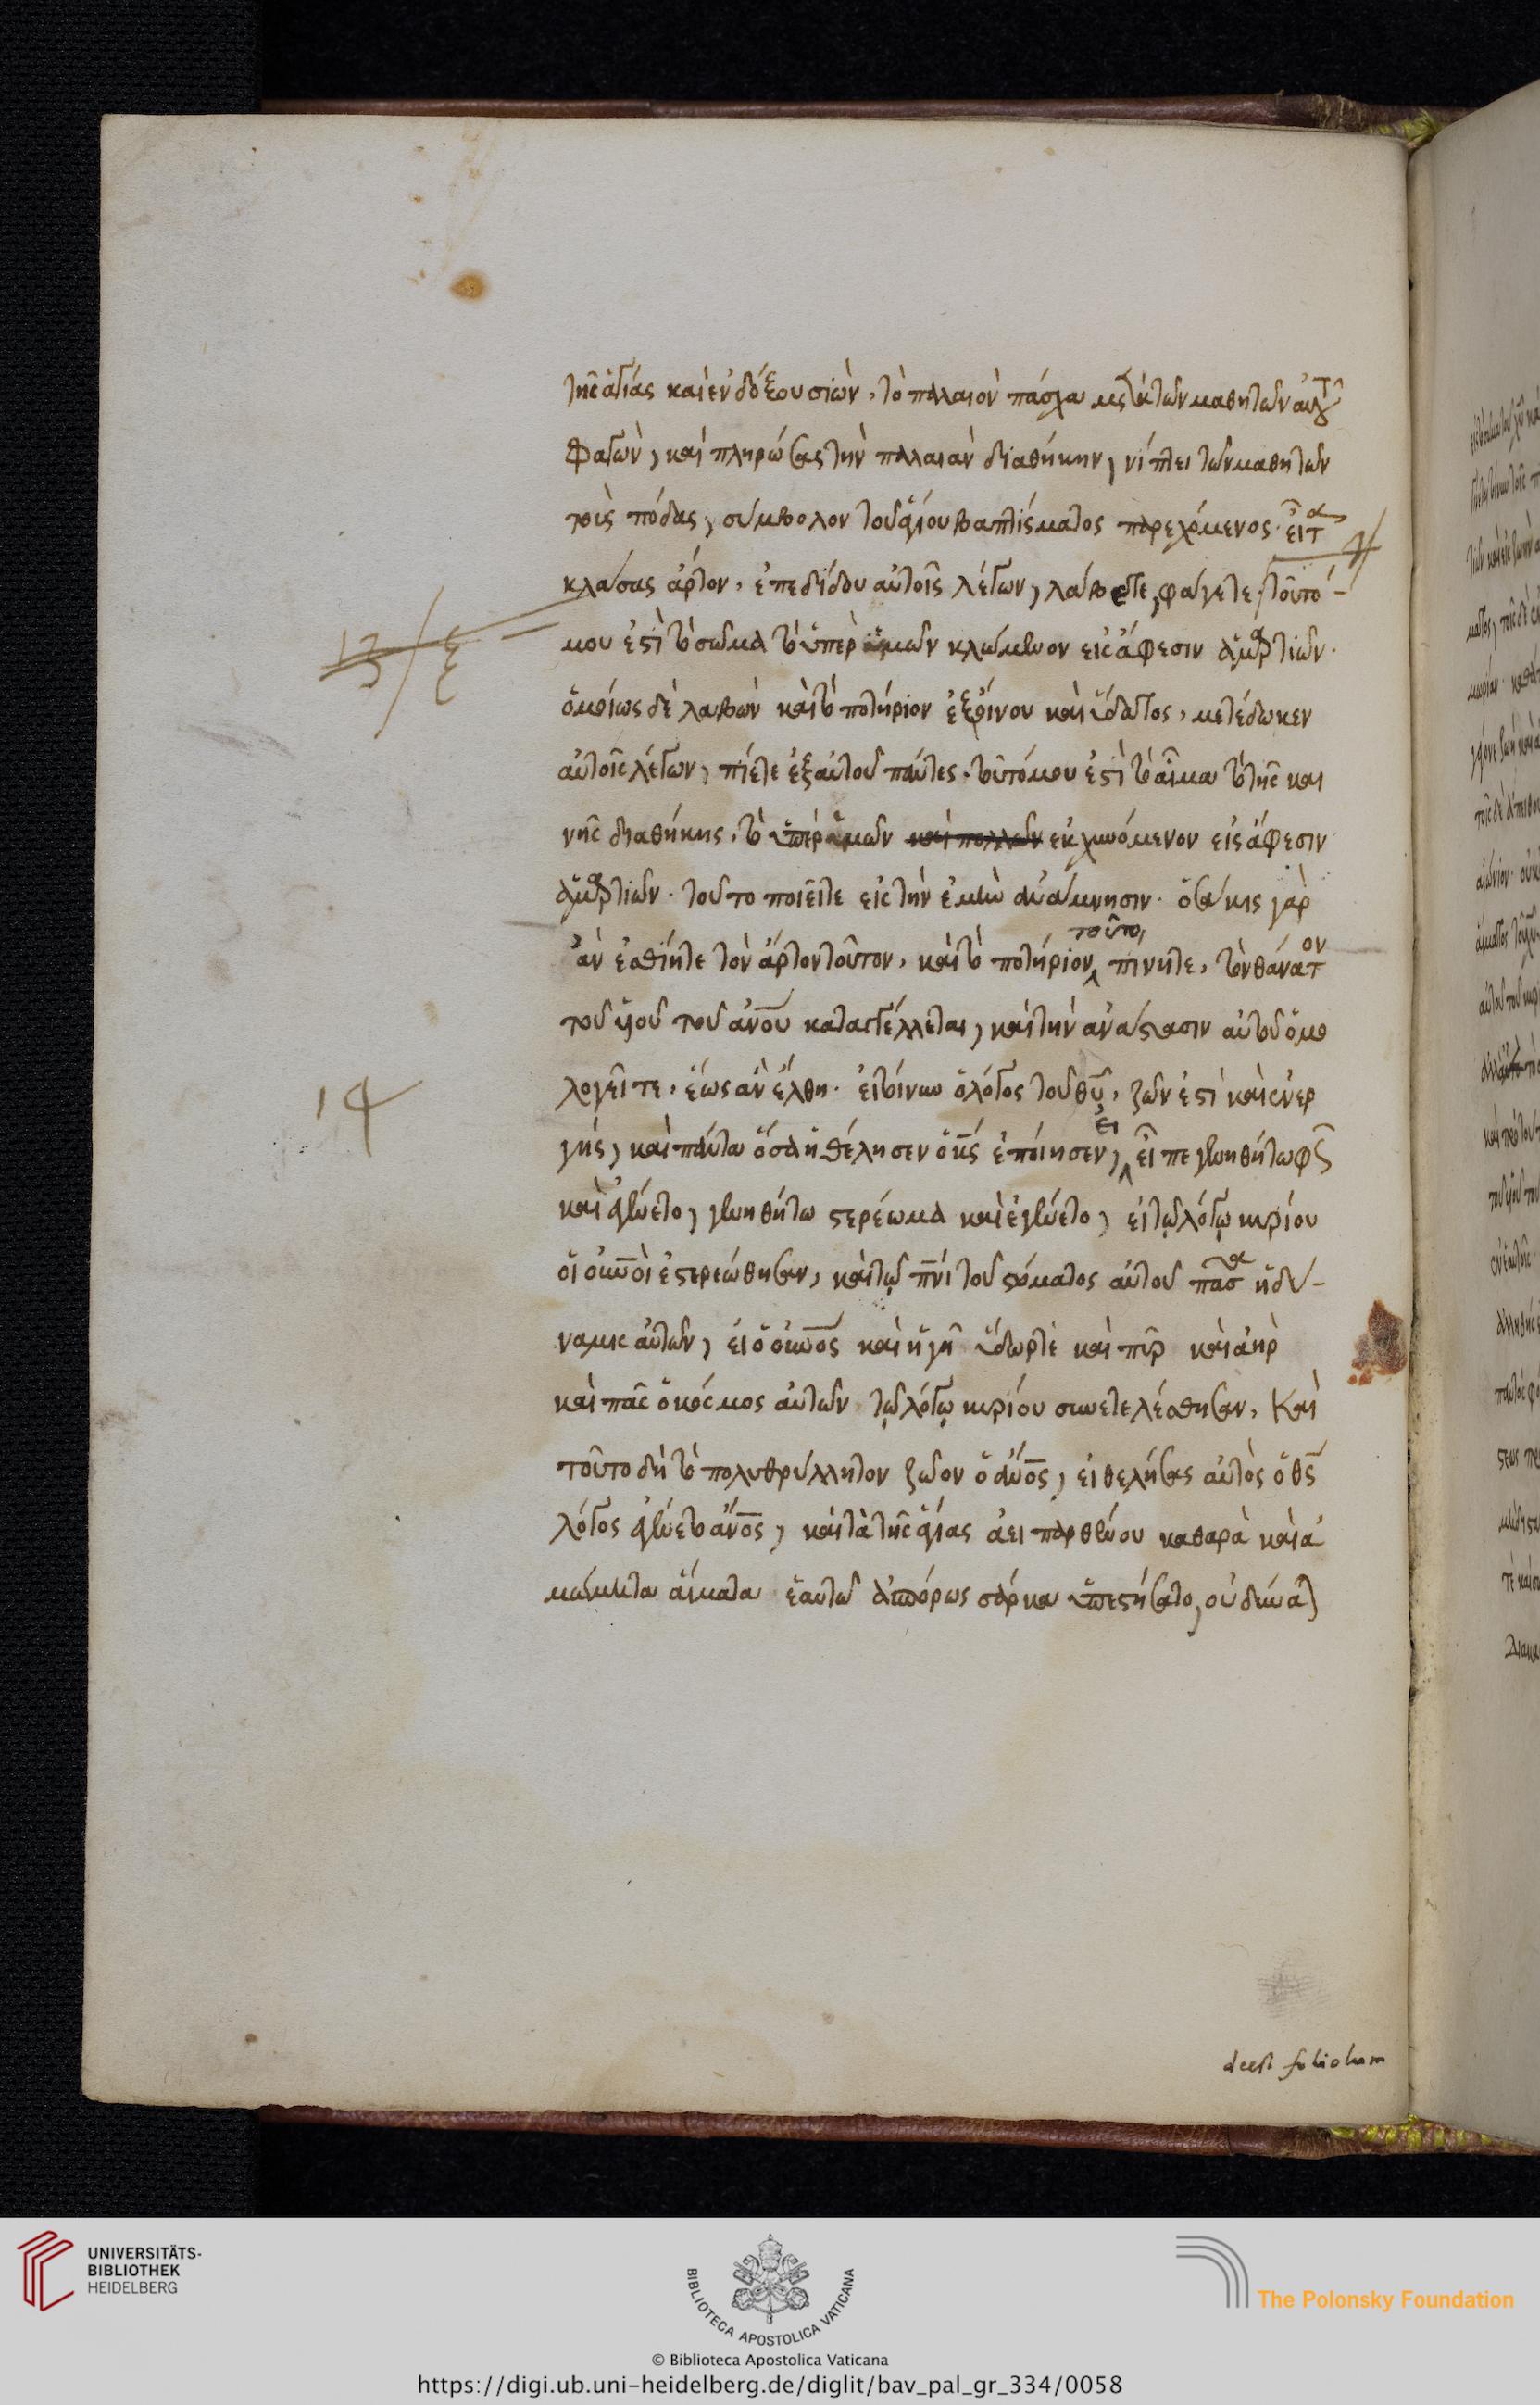 τῆς ἁγίας καὶ ἐνδόξου σιὼν, τὸ παλαιὸν πάσχα μετὰ τῶν μαθητῶν αὐτοῦ
φαγὼν, καὶ πληρώσας τὴν παλαιὰν διαθήκην, νίπτει τῶν μαθητῶν
τοὺς πόδας, σύμβολον τοῦ ἁγίου βαπτίσματος παρεχόμενος. εἶτα
κλάσας ἄρτον, ἐπεδίδου αὐτοῖς λέγων, λάβετε, φάγετε, τοῦτό
13 ξ
μου ἐστὶ τὸ σῶμα τὸ ὑπὲρ ὑμῶν κλώμενον εἰς ἄφεσιν ἁμαρτιῶν.
ὁμοίως δὲ λαβὼν καὶ τὸ ποτήριον ἐξ οἴνου καὶ ὕδατος, μετέδωκεν
αὐτοῖς λέγων, πίετε ἐξ αὐτοῦ πάντες. τοῦτό μου ἐστὶ τὸ αἷμα τὸ τῆς και
νῆς διαθήκης, τὸ ὑπὲρ ὑμῶν καὶ πολλῶν ἐκχυνόμενον εἰς ἄφεσιν
ἁμαρτιῶν. τοῦτο ποιεῖτε εἰς τὴν ἐμὴν ἀνάμνησιν. ὁσάκις γὰρ
ἂν ἐσθίητε τὸν ἄρτον τοῦτον, καὶ τὸ ποτήριον τοῦτο πίνητε, τὸν θάνατον
τοῦ υἱοῦ τοῦ ἀνου καταγγέλλεται, καὶ τὴν ἀνάστασιν αὐτοῦ ὁμο
λογεῖτε, ἕως ἂν ἔλθη. εἰ τοίνυν ὁ λόγος τοῦ θυ, ζῶν ἐστὶ καὶ ἐνερ
14
γής, καὶ πάντα ὅσα ἠθέλησεν ὁ κς ἐποίησεν, εἰ εἶπε γενηθήτω φῶς
καὶ ἐγένετο, γενηθήτω στερέωμα καὶ ἐγένετο, εἰ τῷ λόγῳ κυρίου
οἱ οὐνοὶ ἐστερεώθησαν, καὶ τῷ πνι τοῦ στόματος αὐτοῦ πᾶσα ἡ δύ-
ναμις αὐτῶν, εἰ ὁ οὐνος καὶ ἡ γῆ ὕδωρ τὲ καὶ πῦρ καὶ ἀὴρ
καὶ πᾶς ὁ κόσμος αὐτῶν τῷ λόγῳ κυρίου συνετελέσθησαν, καὶ
τοῦτο δὴ τὸ πολυθρύλλητον ζῶον ὁ ἀνος, εἰ θελήσας αὐτὸς ὁ θς
λόγος ἐγένετο ἀνος, καὶ τὰ τῆς ἁγίας ἀειπαρθένου καθαρὰ καὶ ἀ
μώμητα αἵματα ἑαυτῶ ἀσπόρως σάρκα ὑπεστήσατο, οὐ δύναται
deest foliolum
UNIVERSITÄTS-
BIBLIOTHEK
HEIDELBERG
BIBLIOTECA APOSTOLICA VATICANA
The Polonsky Foundation
© Biblioteca Apostolica Vaticana
https://digi.ub.uni-heidelberg.de/diglit/bav_pal_gr_334/0058